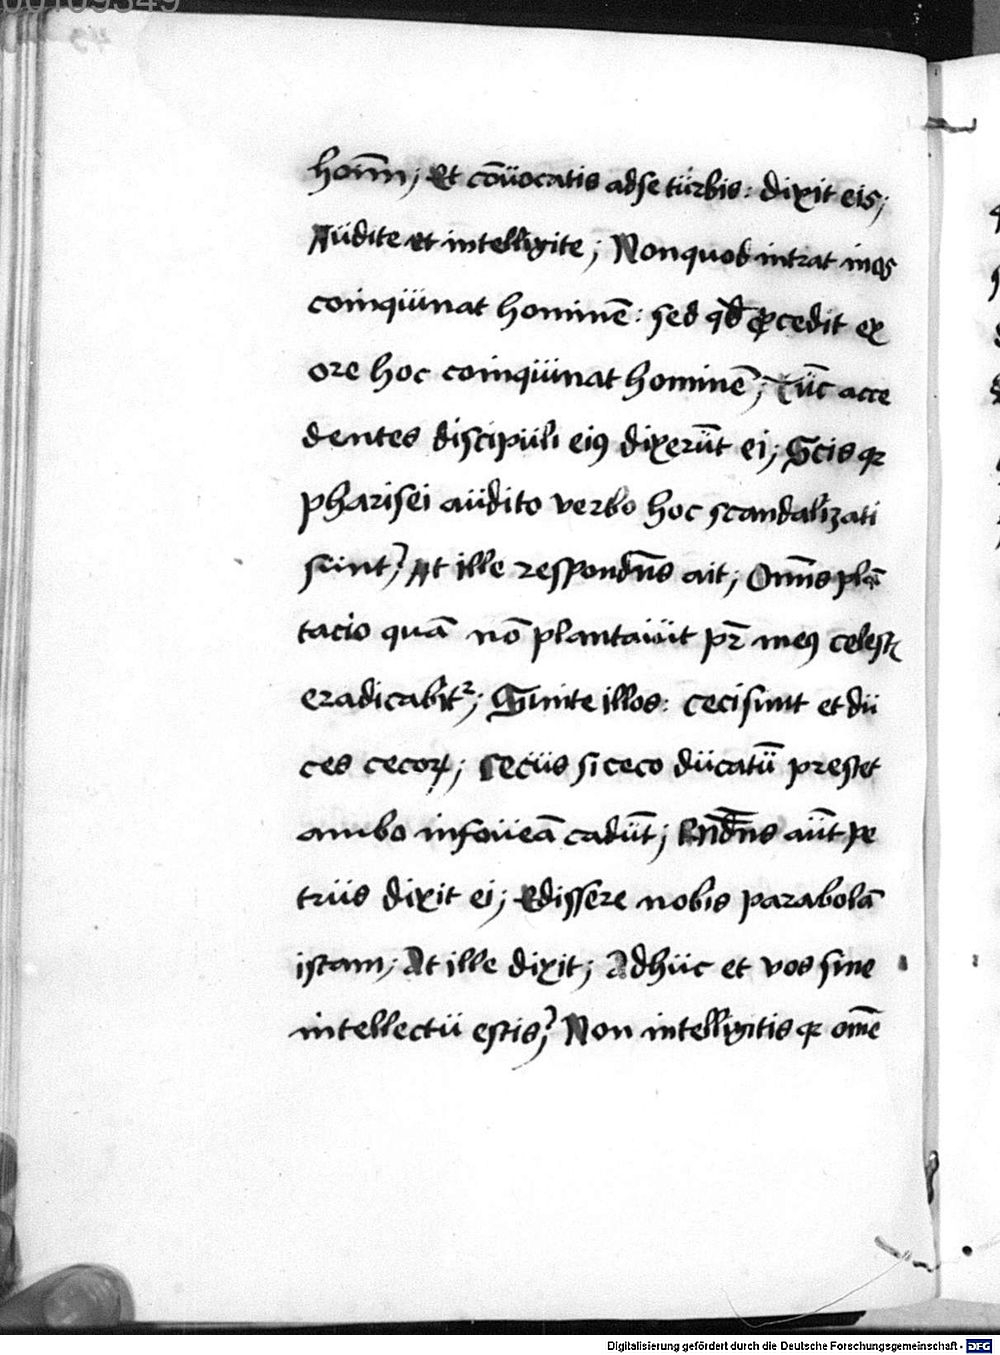 00109349
hoīm; Et cōuocatis adse turbis: dixit eis;
Audite et intelligite; Nonquod intrat inos
coinquinat hominē: sed qđ ꝓcedit ex
ore hoc coinquinat hominē; Tūc acce
dentes discipuli eiꝰ dixerūt ei; Scis qꝛ
pharisei audito verbo hoc scandalizati
sunt? At ille respondēs ait; Om̄s plā
tacio quā nō plantauit pr̄ meꝰ celestꝭ
eradicabitᷣ; Sinite illos: ceci sunt et du
ces cecoꝝ; cecus si ceco ducatū prestet
ambo infoueā cadūt; Rn̄dēs aūt pe
trus dixit ei; Edissere nobis parabolā
istam; At ille dixit; Adhuc et vos sine
intellectu estis? Non intelligitis qꝛ om̄e
Digitalisierung gefördert durch die Deutsche Forschungsgemeinschaft - DFG